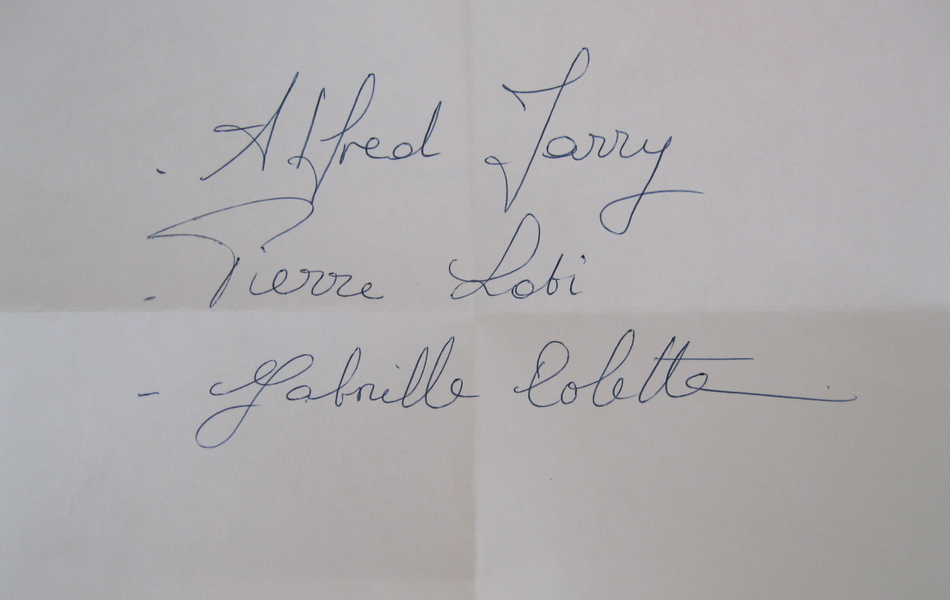 . Alfred Jarry
- Pierre Lobi
- Gabrielle Colette